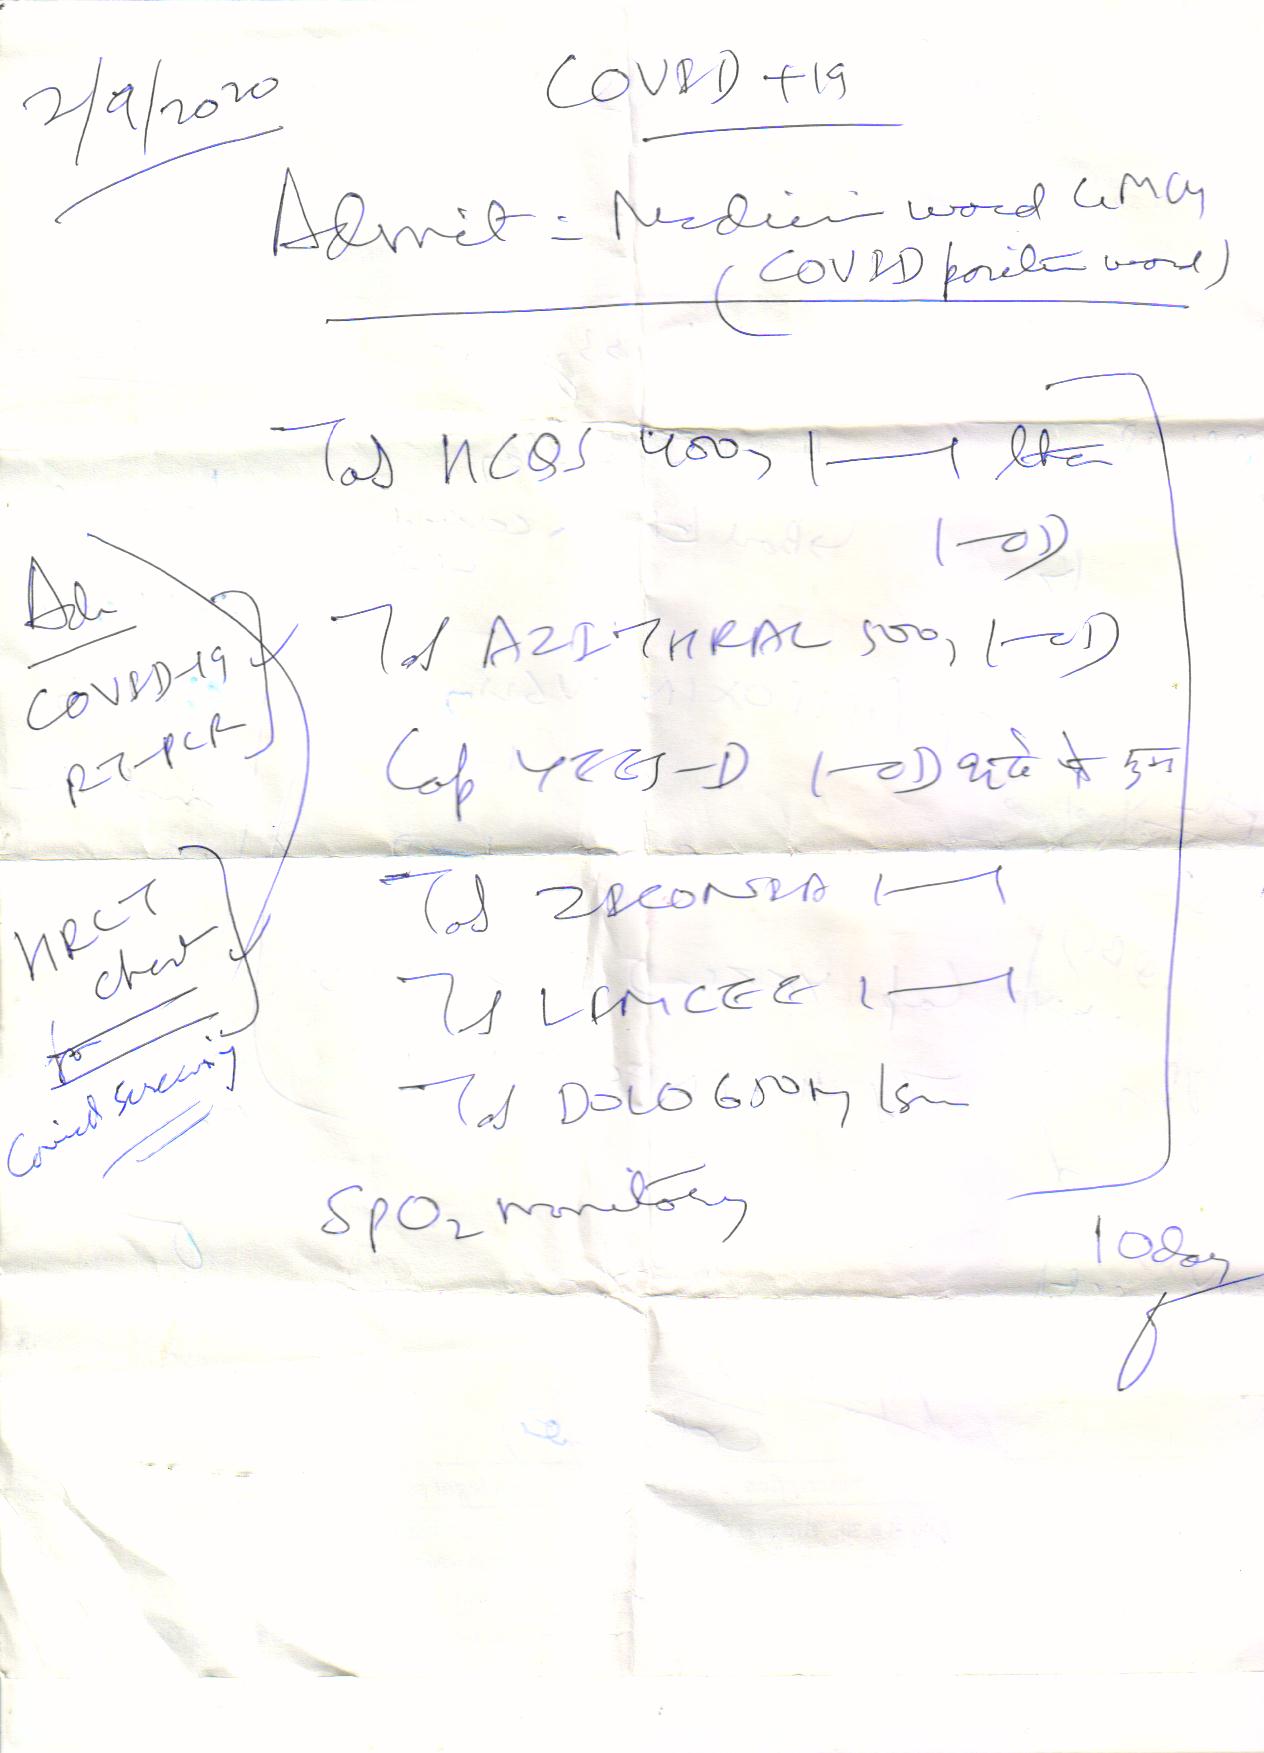 2/9/2020
COVID +19
Admit = Medicine ward GMCH
(COVID positive ward)
Tab HCQS 400mg 1—1 then
1—OD
Adv
COVID-19
RT-PCR
Tab AZITHRAL 500mg 1—OD
Cap YEES-D 1—OD
HRCT
chest
for
Covid screening
Tab ZICONIA 1—1
Tab LIMCEE 1—1
Tab DOLO 650mg 1 SOS
SpO2 monitoring
10 day